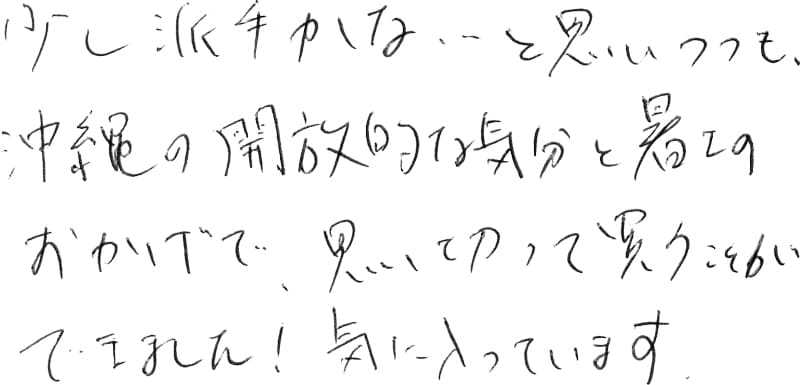 少し派手かな…と思いつつも、
沖縄の開放的な気分と暑さの
おかげで、思い切って買うことが
できました！気に入っています。